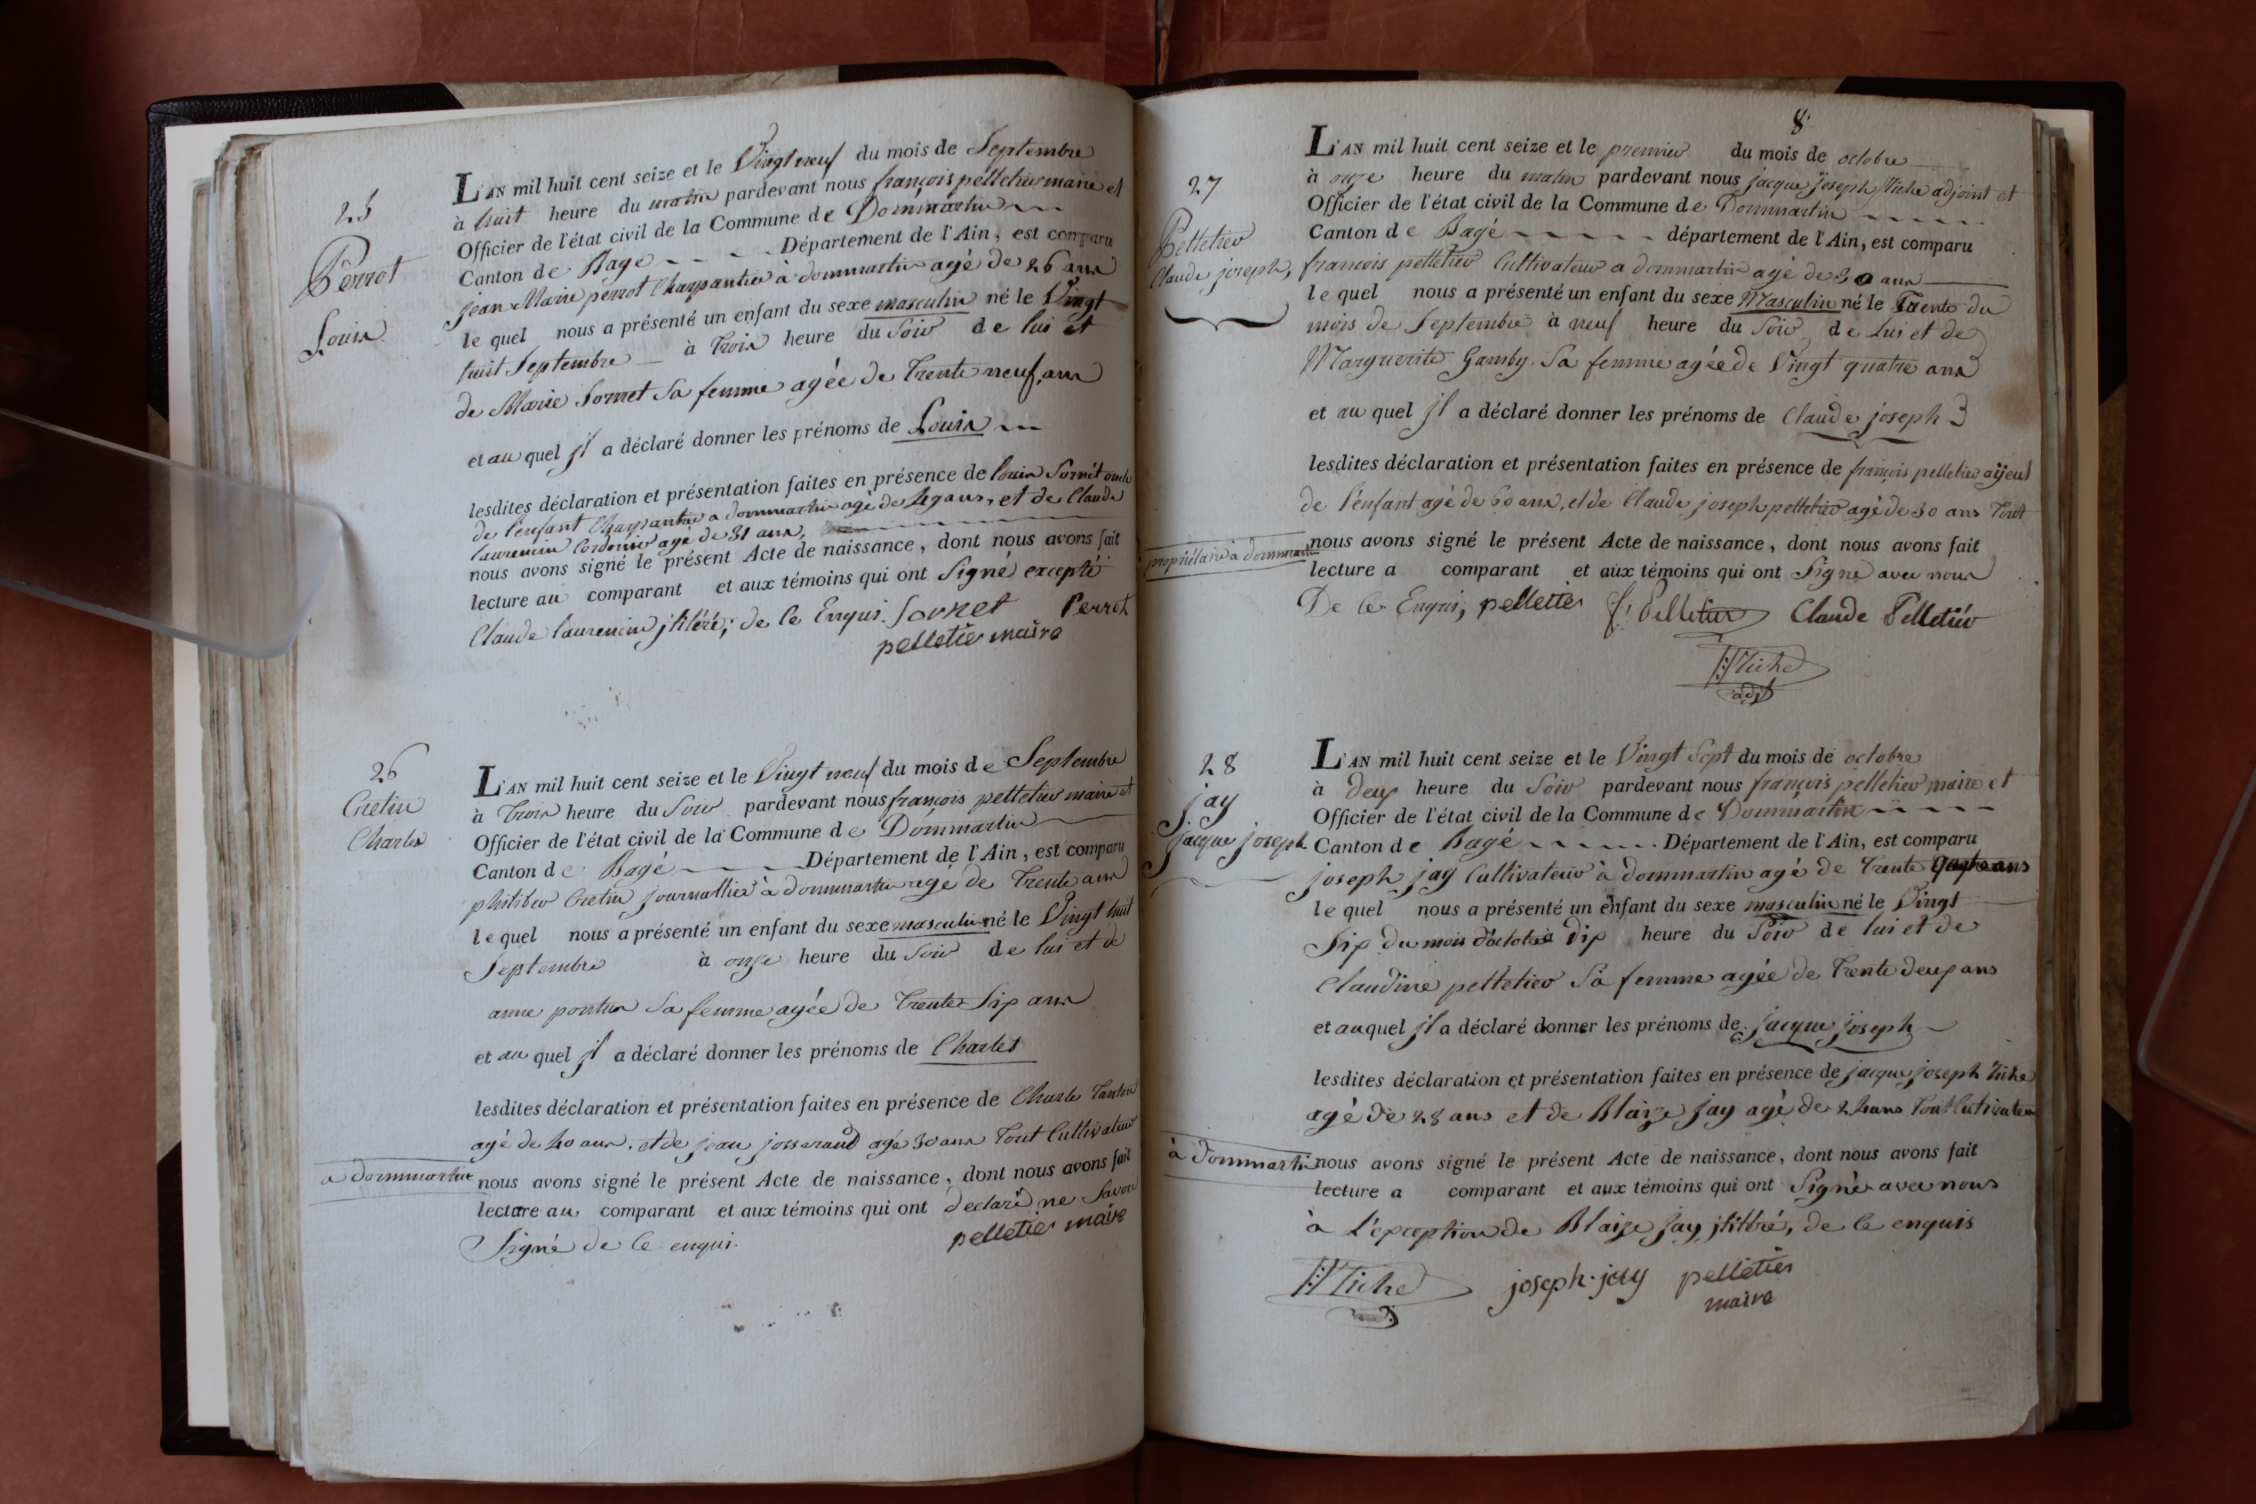 25
Perrot
Louis
L'AN mil huit cent seize et le Vingt neuf du mois de Septembre
à huit heure du matin pardevant nous françois pelletier maire et
Officier de l'état civil de la Commune de Dommartin
Canton de Bagé Département de l'Ain, est comparu
jean Marie perrot Charpantier à dommartin agé de 26 ans
le quel nous a présenté un enfant du sexe masculin né le Vingt
huit Septembre à trois heure du Soir de lui et
de Marie Sornet Sa femme agée de trente neuf ans
et au quel jl a déclaré donner les prénoms de Louis
lesdites déclaration et présentation faites en présence de louis Sornet oncle
de l'enfant Charpantier a dommartin agé de 49 ans, et de Claude
laurencin Cordonier agé de 31 ans,
nous avons signé le présent Acte de naissance, dont nous avons fait
lecture au comparant et aux témoins qui ont Signé excepté
Claude laurencin jlitéré; de ce Enquis. Sornet Perrot
pelletier maire
26
Cretin
Charles
L'AN mil huit cent seize et le Vingt neuf du mois de Septembre
à trois heure du Soir pardevant nous françois pelletier maire et
Officier de l'état civil de la Commune de Dommartin
Canton de Bagé Département de l'Ain, est comparu
philiber Cretin journallier à dommartin agé de trente ans
le quel nous a présenté un enfant du sexe masculin né le Vingt huit
Septembre à onze heure du Soir de lui et de
anne Sa femme agée de trente Six ans
et au quel jl a déclaré donner les prénoms de Charles
lesdites déclaration et présentation faites en présence de Charles
agé de 40 ans. et de jean josserand agé 30 ans tout Cultivateur
a dommartin nous avons signé le présent Acte de naissance, dont nous avons fait
lecture au comparant et aux témoins qui ont declaré ne Savoir
Signé de ce enqui. pelletier maire
8
27
Pelletier
Claude joseph,
L'AN mil huit cent seize et le premier du mois de octobre
à onze heure du matin pardevant nous jacque joseph Tiche adjoint et
Officier de l'état civil de la Commune de Dommartin
Canton de Bagé département de l'Ain, est comparu
francois pelletier Cultivateur a dommartin agé de 30 ans
le quel nous a présenté un enfant du sexe Masculin né le Trente du
mois de Septembre à neuf heure du Soir de Lui et de
Marguerite Gamby. Sa femme agée de Vingt quatre ans
et au quel jl a déclaré donner les prénoms de Claude joseph
lesdites déclaration et présentation faites en présence de françois pelletier aÿeul
de l'enfant agé de 60 ans, et de Claude joseph pelletier agé de 30 ans tout
propriétaire à dommartin nous avons signé le présent Acte de naissance, dont nous avons fait
lecture a comparant et aux témoins qui ont Signé avec nous
De ce Enquis, pelletier f. Pelletier Claude Pelletier
JJ Tiche
adjt
28
jay
jacque joseph
L'AN mil huit cent seize et le Vingt Sept du mois de octobre
à deux heure du Soir pardevant nous françois pelletier maire et
Officier de l'état civil de la Commune de Dommartin
Canton de Bagé Département de l'Ain, est comparu
joseph jay Cultivateur à dommartin agé de trente quatre ans
le quel nous a présenté un enfant du sexe masculin né le Vingt
Six du mois d'octobre à dix heure du Soir de lui et de
Claudine pelletier Sa femme agée de trente deux ans
et auquel jl a déclaré donner les prénoms de jacque joseph
lesdites déclaration et présentation faites en présence de jacque joseph Tiche
agé de 28 ans et de Blaize jay agé de 24 ans tout Cultivateur
à dommartin nous avons signé le présent Acte de naissance, dont nous avons fait
lecture a comparant et aux témoins qui ont Signé avec nous
à l'exception de Blaize jay jlittéré, de ce enquis
JJ Tiche joseph jay pelletier
maire